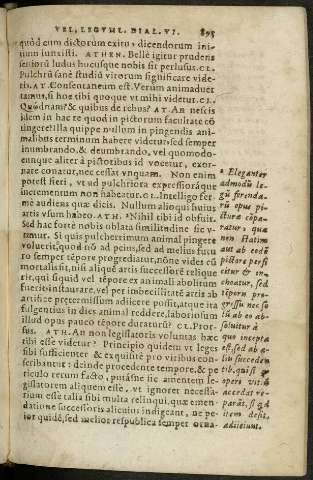 VEL, LEGVML. DIAL. VI. 895
quòd eum dictorum exitũ, dicendorum ini
tium iunxisti. ATHEN. Bellè igitur prudens
seniorũ ludus hucusque nobis sit perlusus. CL.
Pulchrũ sanè studiũ virorum significare vide
ris. AT. Consentaneum est. Verùm animaduer
tamus, si hoc tibi quoque vt mihi videtur. CL.
Quódnam? & quibus de rebus? AT. An nescis
idem in hac re quod in pictorum facultate cõ
tingere? Illa quippe nullum in pingendis ani
malibus terminum habere videtur: sed semper
inumbrando, & deumbrando, vel quomodo-
cunque aliter à pictoribus id vocetur, exor-
nare conatur, nec cessat vnquam. Non enim
potest fieri, vt ad pulchriora expressioráque
incrementum non habeatur. CL. Intelligo fer-
mè audiens quæ dicis. Nullum alioqui huius
artis vsum habeo. ATH. Nihil tibi id obfuit.
Sed hac forte nobis oblata similitudine sic v-
tamur. Si quis pulcherrimum animal pingere
voluerit, quod nõ ad peius, sed ad melius futu
ro semper tẽpore progrediatur, nõne vides cũ
mortalis sit, nisi aliquẽ artis successorẽ relique
rit, qui si quid vel tẽpore ex animali abolitum
fuerit instauraret, vel per imbecillitatẽ artis ab
artifice prætermissum adiicere possit, atque ita
fulgentius in dies animal reddere, laboriosum
illud opus pauco tẽpore duraturũ? CL. Pror-
sus. ATH. An non legislatoris voluntas hæc
tibi esse videtur? Principiò quidem vt leges
sibi sufficienter & exquisitè pro viribus con-
scribantur: deinde procedente tempore, & pe
riculo rerum facto, putásne sic amentem le-
gislatorem aliquem esse, vt ignoret necessa-
rium esse talia sibi multa relinqui, quæ emen-
datione successoris alicuius indigeant, ne pe-
ior quidẽ, sed melior respublica semper orna-
a Eleganter
admodũ le-
gũ ferenda-
rũ opus pi-
cturæ cõpa-
ratur, quæ
nen statim
aut ab eodẽ
pictore perfi
citur & in-
choatur, sed
tẽporũ pro-
gressu nec si
tũ ab eo ab-
soluitur à
quo incepta
est, sed ab a-
liis succedẽ
tib. qui si q̃
operi vitiũ
accedat re-
parãt, si qđ
item desit,
adiiciunt.